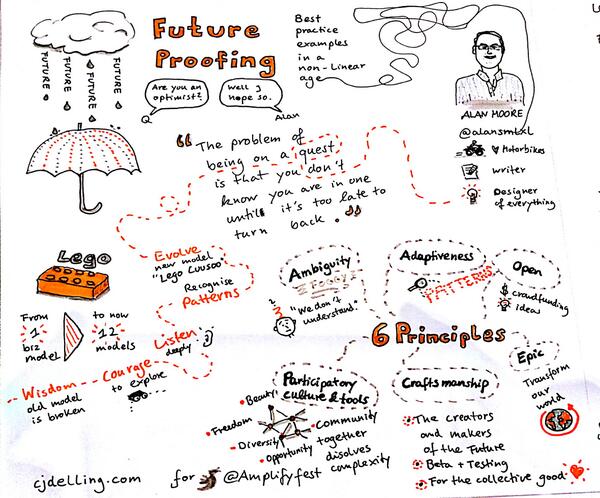 Future
Proofing
Best
practice
examples
in a
non-Linear
age
FUTURE
FUTURE
FUTURE
FUTURE
Are you an
optimist?
Q
Well I
hope so.
Alan
ALAN MOORE
@alansmlxl
♥ Motorbikes
writer
Designer
of everything
"The problem of
being on a quest
is that you don't
know you are in one
until it's too late to
turn back."
Lego
From
1
biz
model
to now
12
models
Evolve
new model
"Lego Cuusoo"
Recognise
Patterns
Listen
deeply
Wisdom
old model
is broken
Courage
to explore
6 Principles
Ambiguity
"We don't
understand."
Adaptiveness
PATTERNS
Open
$ crowdfunding
idea
Epic
Transform
our
world
Participatory
culture & tools
• Beauty
• Freedom
• Diversity
• Opportunity
Community
together
dissolves
complexity
Craftsmanship
The creators
and makers
of the Future
Beta + Testing
For the collective good
cjdelling.com for @Amplifyfest